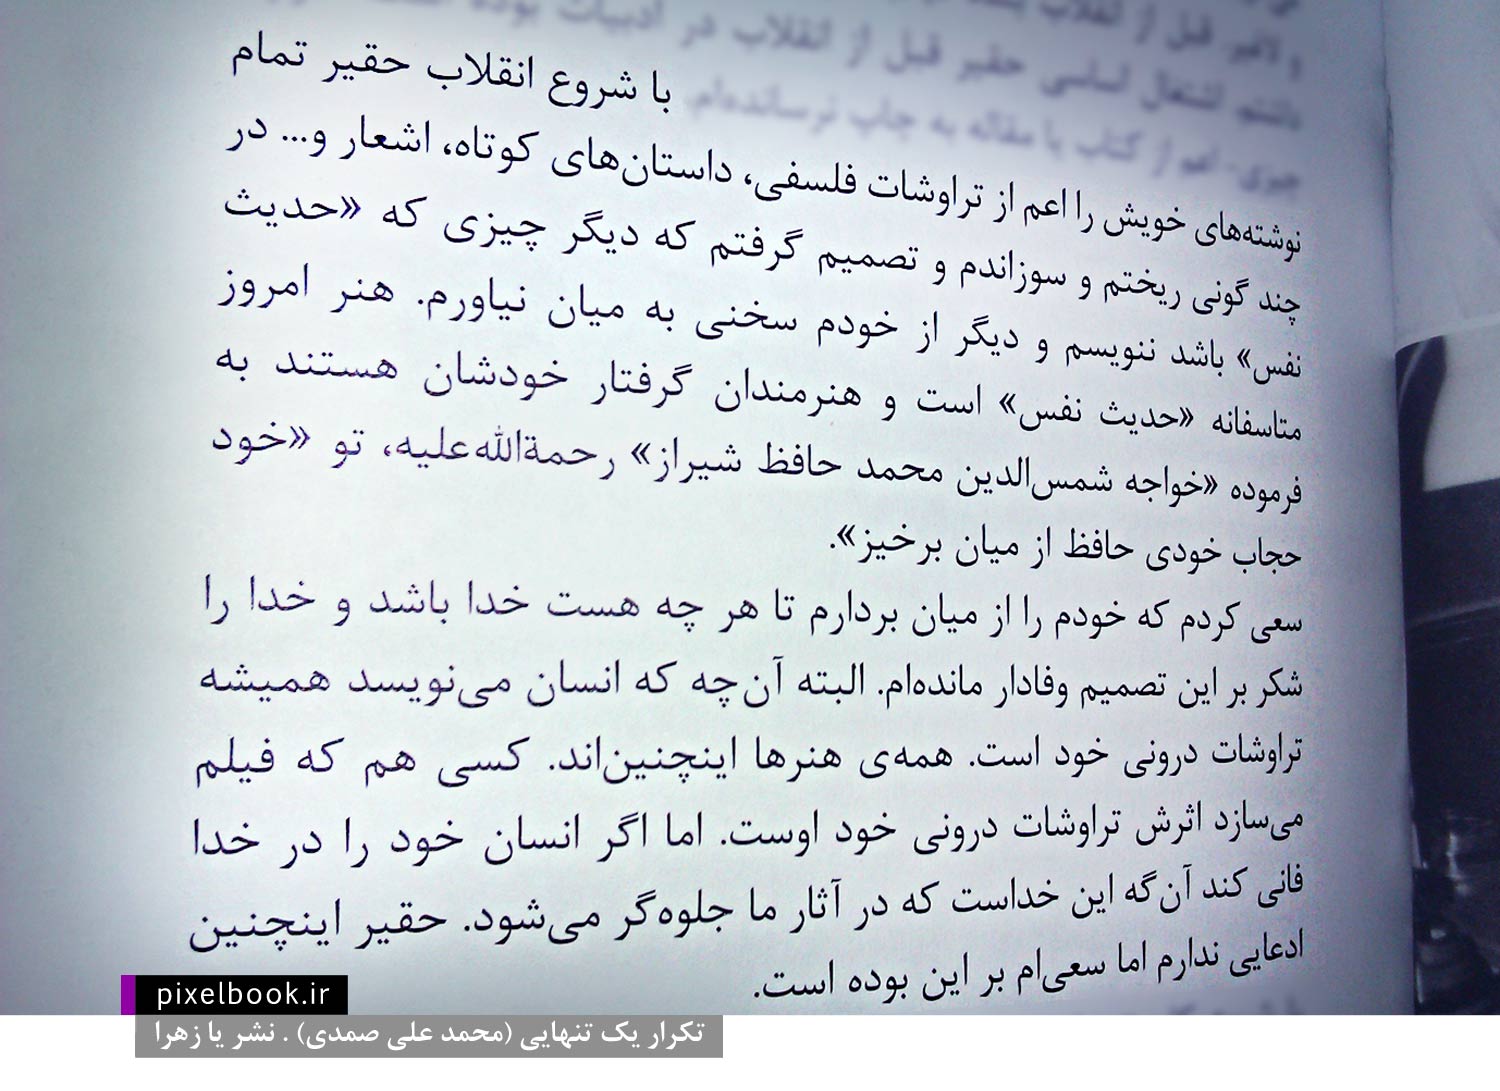 و لاغیر. قبل از انقلاب
داشتم. اشتغال اساسی حقیر قبل از انقلاب در ادبیات بوده
چیزی- اعم از کتاب یا مقاله به چاپ نرسانده‌ام.
با شروع انقلاب حقیر تمام
نوشته‌های خویش را اعم از تراوشات فلسفی، داستان‌های کوتاه، اشعار و... در
چند گونی ریختم و سوزاندم و تصمیم گرفتم که دیگر چیزی که «حدیث
نفس» باشد ننویسم و دیگر از خودم سخنی به میان نیاورم. هنر امروز
متاسفانه «حدیث نفس» است و هنرمندان گرفتار خودشان هستند به
فرموده «خواجه شمس‌الدین محمد حافظ شیراز» رحمةالله‌علیه، تو «خود
حجاب خودی حافظ از میان برخیز».
سعی کردم که خودم را از میان بردارم تا هر چه هست خدا باشد و خدا را
شکر بر این تصمیم وفادار مانده‌ام. البته آن‌چه که انسان می‌نویسد همیشه
تراوشات درونی خود است. همه‌ی هنرها اینچنین‌اند. کسی هم که فیلم
می‌سازد اثرش تراوشات درونی خود اوست. اما اگر انسان خود را در خدا
فانی کند آن‌گه این خداست که در آثار ما جلوه‌گر می‌شود. حقیر اینچنین
ادعایی ندارم اما سعی‌ام بر این بوده است.
pixelbook.ir
تکرار یک تنهایی (محمد علی صمدی) . نشر یا زهرا